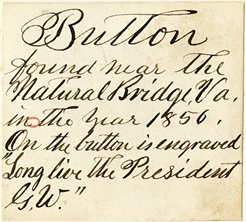 Button
found near the
Natural Bridge, Va.
in the year 1856.
On the button is engraved
"Long live the President
G.W."